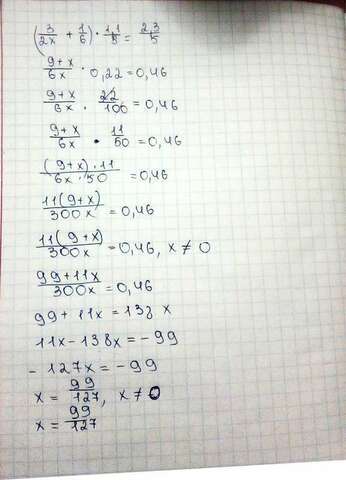 (3/2x + 1/6) · 1,1/5 = 2,3/5
9+x/6x · 0,22 = 0,46
9+x/6x · 22/100 = 0,46
9+x/6x · 11/50 = 0,46
(9+x)·11/6x·50 = 0,46
11(9+x)/300x = 0,46
11(9+x)/300x = 0,46, x ≠ 0
99+11x/300x = 0,46
99+11x = 138x
11x-138x = -99
-127x = -99
x = 99/127, x ≠ 0
x = 99/127